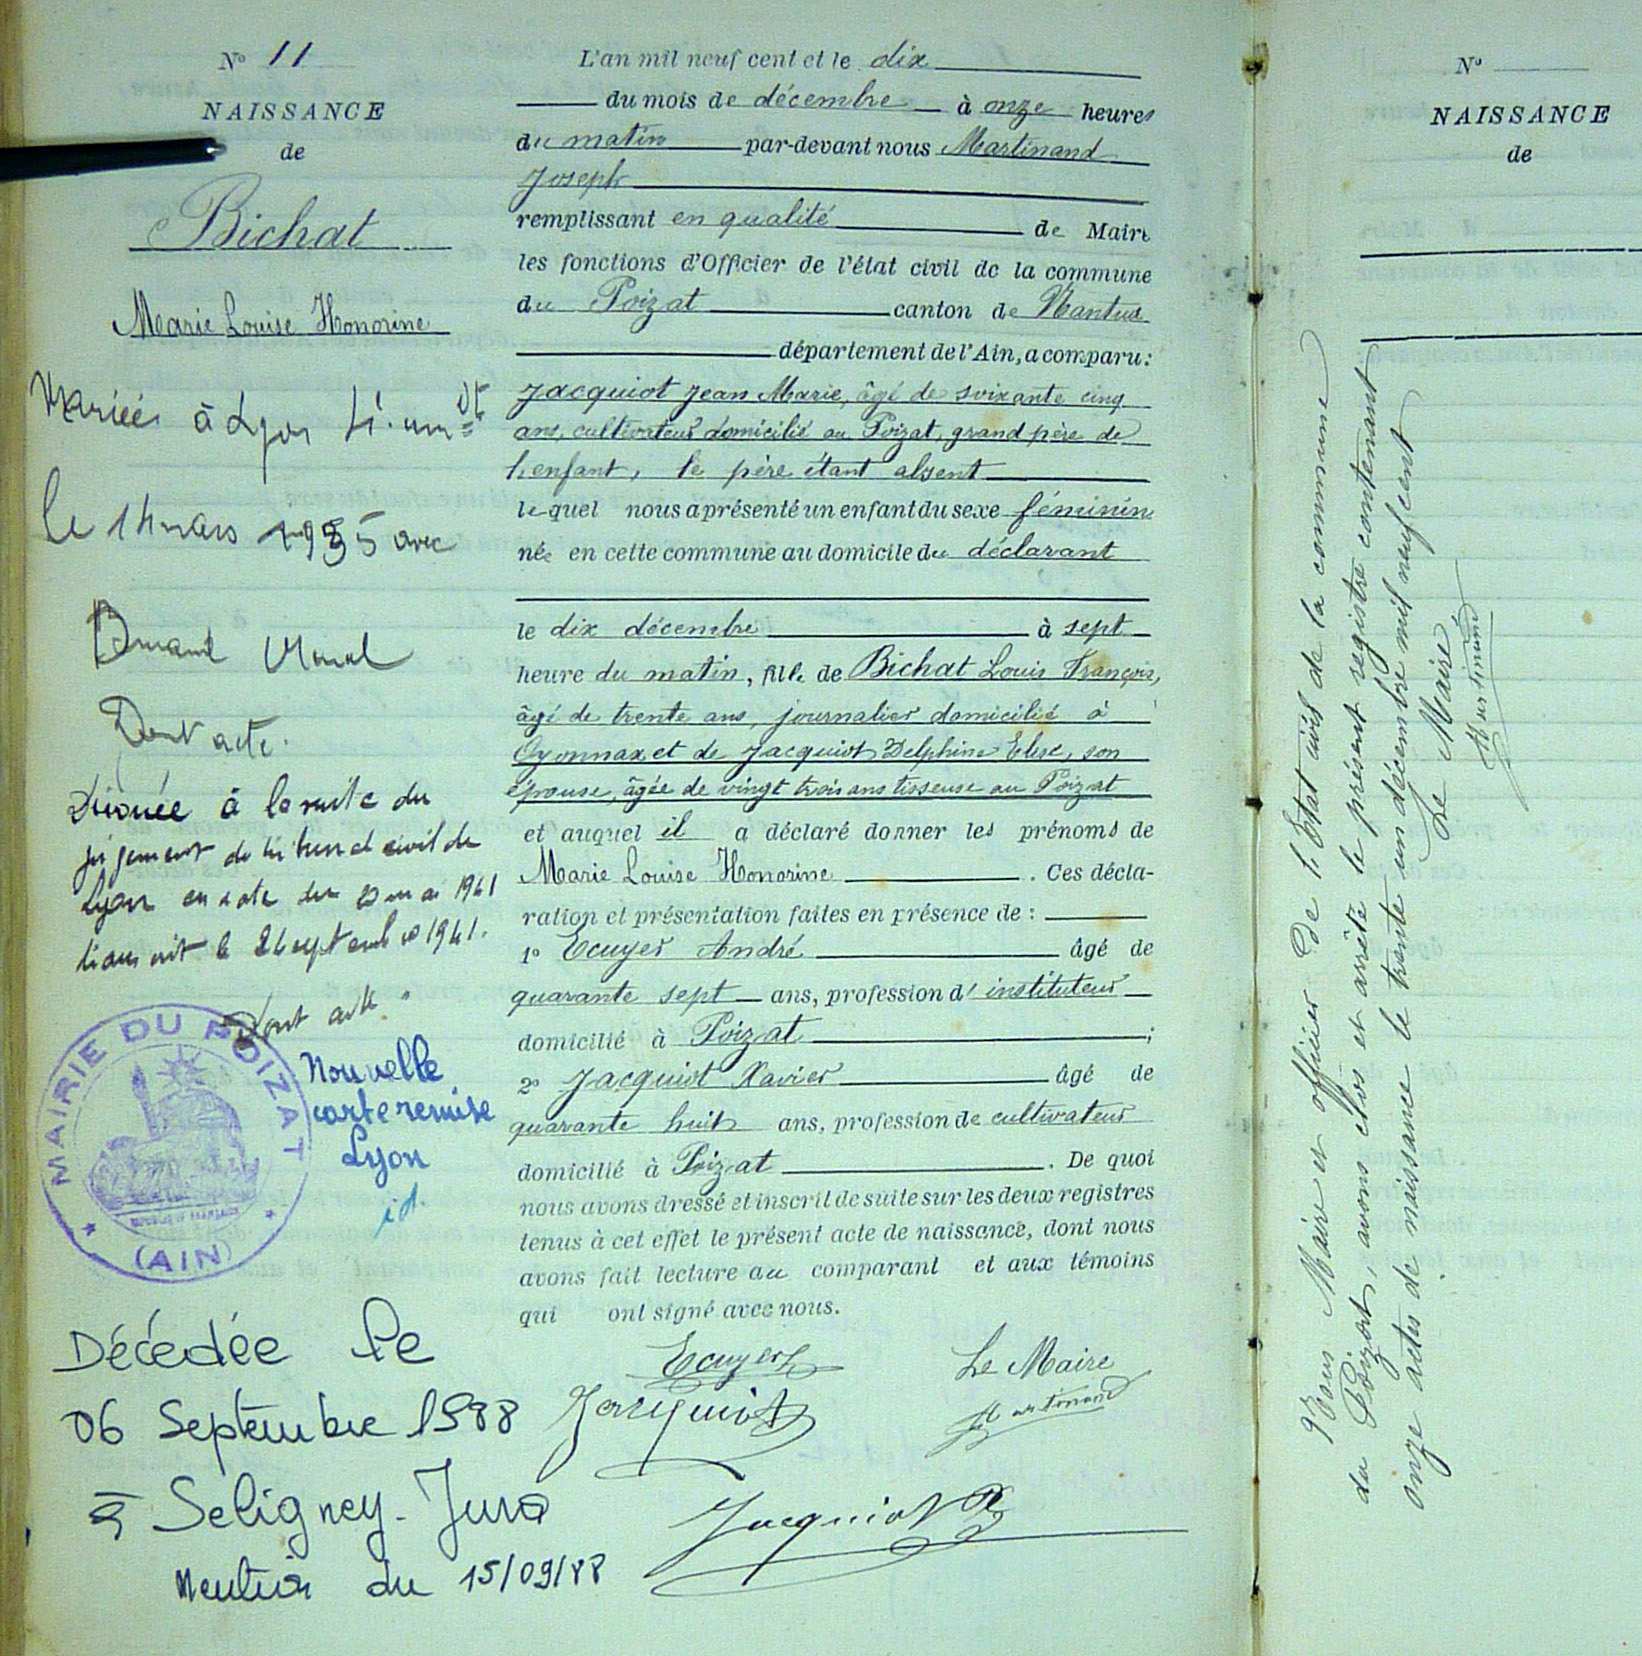 N° 11
NAISSANCE
de
Bichat
Marie Louise Honorine
Mariée à Lyon
le 14 mars 1935 avec
Dont acte.
Divorcée à la suite du
jugement du tribunal civil de
Lyon en date du 20 mai 1941
transcrit le 24 septembre 1941.
Dont acte.
MAIRIE DU POIZAT
(AIN)
Nouvelle
carte remise
Lyon
id.
Décédée le
06 Septembre 1988
à Seligney-Jura
Mention du 15/09/88
L'an mil neuf cent et le dix
du mois de décembre à onze heures
du matin par-devant nous Martinand
Joseph
remplissant en qualité de Maire
les fonctions d'Officier de l'état civil de la commune
du Poizat canton de Nantua
département de l'Ain, a comparu :
Jacquiot Jean Marie, âgé de soixante cinq
ans, cultivateur domicilié au Poizat, grand père de
l'enfant, le père étant absent
lequel nous a présenté un enfant du sexe féminin
née en cette commune au domicile du déclarant
le dix décembre à sept
heure du matin, fille de Bichat Louis François,
âgé de trente ans, journalier domicilié à
Oyonnax et de Jacquiot Delphine Elise, son
épouse, âgée de vingt trois ans tisseuse au Poizat
et auquel il a déclaré donner les prénoms de
Marie Louise Honorine . Ces décla-
ration et présentation faites en présence de :
1° Ecuyer André âgé de
quarante sept ans, profession d'instituteur
domicilié à Poizat ;
2° Jacquiot Xavier âgé de
quarante huit ans, profession de cultivateur
domicilié à Poizat . De quoi
nous avons dressé et inscrit de suite sur les deux registres
tenus à cet effet le présent acte de naissance, dont nous
avons fait lecture au comparant et aux témoins
qui ont signé avec nous.
Ecuyer
Le Maire
Jacquiot
Martinand
Jacquiot X
N°
NAISSANCE
de
Nous Maire et officier de l'Etat civil de la commune
du Poizat, avons clos et arrêté le présent registre contenant
onze actes de naissance le trente un décembre mil neuf cent
Le Maire
Martinand